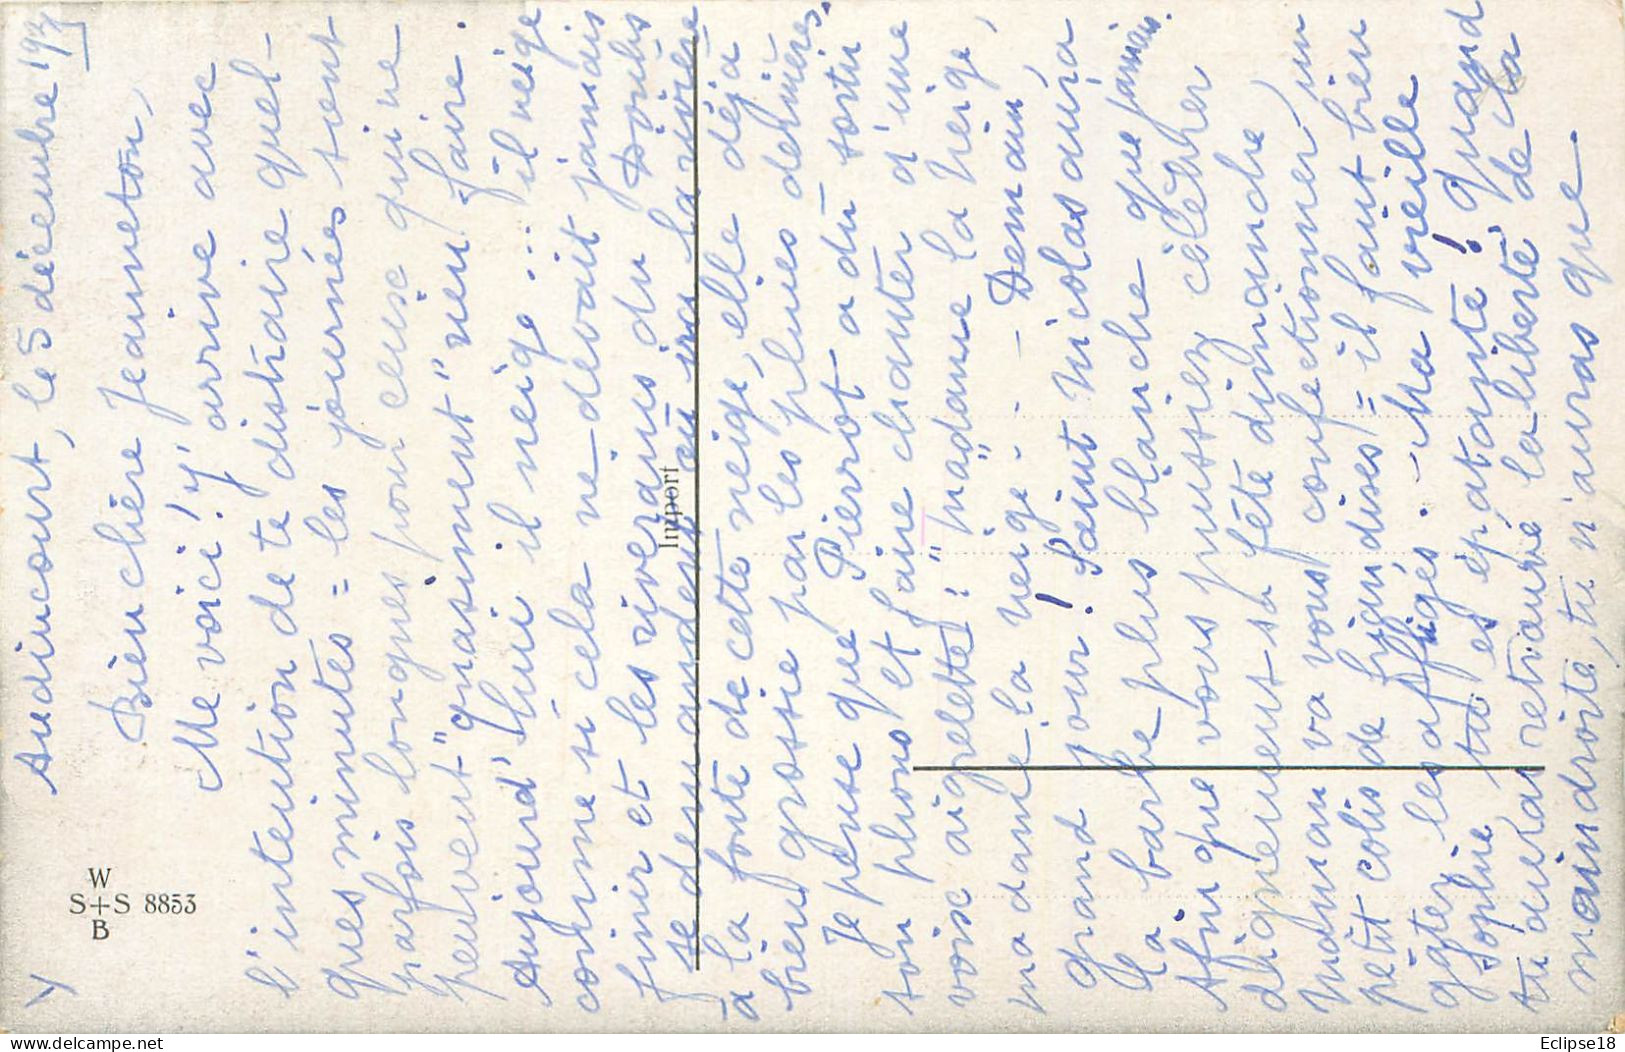 Audincourt, le 5 décembre 193
Bien chère Jeanneton,
Me voici! J'arrive avec
l'intention de te distraire quel-
ques minutes = les journées sont
parfois longues pour ceux qui ne
peuvent "quasiment" rien faire.
Aujourd'hui il neige... il neige
comme si cela ne devait jamais
finir et les riverains du Doubs
se demandent où ira la rivière
à la fonte de cette neige, elle déjà
bien grossie par les pluies dernières.
Je pense que Pierrot a dû sortir
son plions et faire chanter d'une
voix aigrelette: "madame la neige,
madame la neige... - Demain,
grand jour! Saint Nicolas aura
la barbe plus blanche que jamais.
Afin que vous puissiez célébrer
dignement sa fête dimanche,
maman va vous confectionner un
petit colis de friandises = il faut bien
gâter les affligés. - Ma vieille
Sophie tu es épatante! quand
tu auras retrouvé la liberté de la
main droite, tu n'auras que
y
W
S+S 8853
B
Import
delcampe.net
Eclipse18